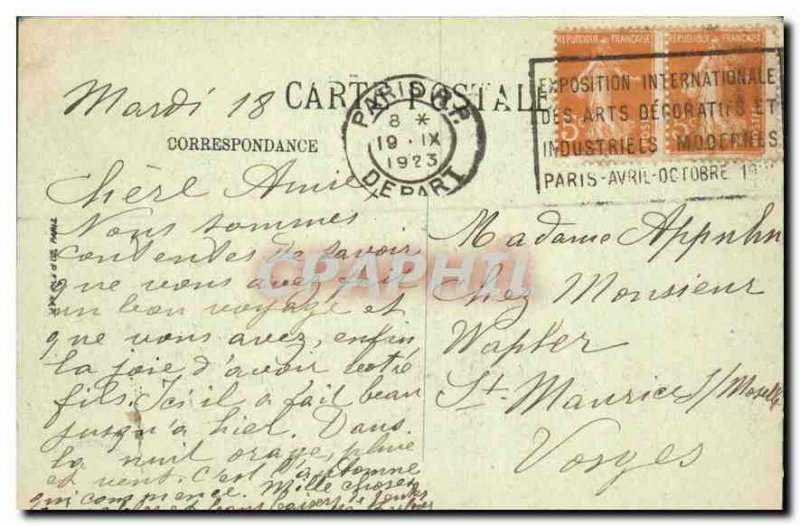 REPUBLIQUE FRANÇAISE REPUBLIQUE FRANÇAISE
EXPOSITION INTERNATIONALE
DES ARTS DÉCORATIFS ET
INDUSTRIELS MODERNES
PARIS-AVRIL-OCTOBRE
Mardi 18
CARTE POSTALE
PARIS R.P.
8 *
19 · IX
1923
DEPART
CORRESPONDANCE
Chère Amie
Nous sommes
contentes de savoir
que vous avez
un bon voyage et
que vous avez, enfin
la joie d'avoir votre
fils. Ici il a fait beau
jusqu'à hier. Dans
la nuit orage, pluie
et vent, c'est l'automne
qui commence. Mille choses
et bons baisers de toutes
Madame
Chez Monsieur
St. Maurice s/Moselle
Vosges
CPAPHIL